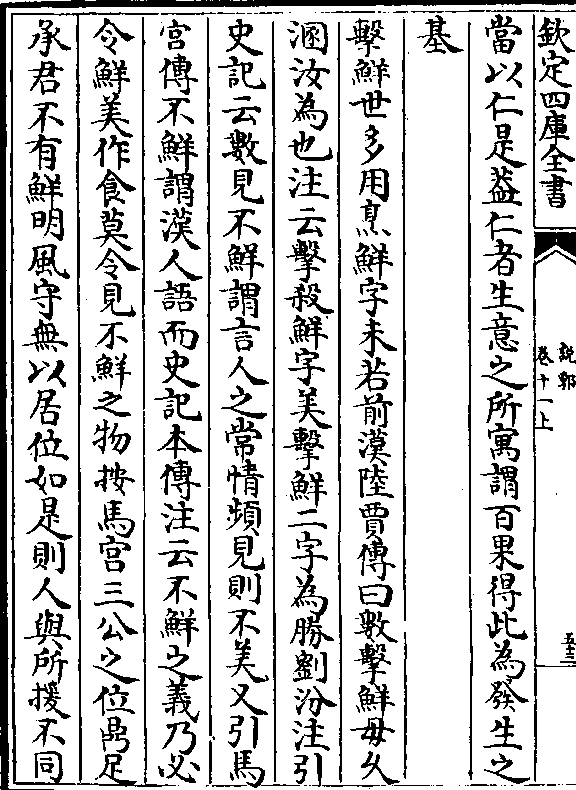 欽定四庫全書
說郛
卷十一上
五十三
當以仁是葢仁者生意之所寓謂百果得此為發生之
基
擊鮮世多用烹鮮字未若前漢陸賈傳曰數擊鮮毋久
溷汝為也注云擊殺鮮字美擊鮮二字為勝劉汾注引
史記云數見不鮮謂言人之常情頻見則不美又引馬
宮傳不鮮謂漢人語而史記本傳注云不鮮之義乃必
令鮮美作食莫令見不鮮之物按馬宮三公之位鼎足
承君不有鮮明風守無以居位如是則人與所援不同